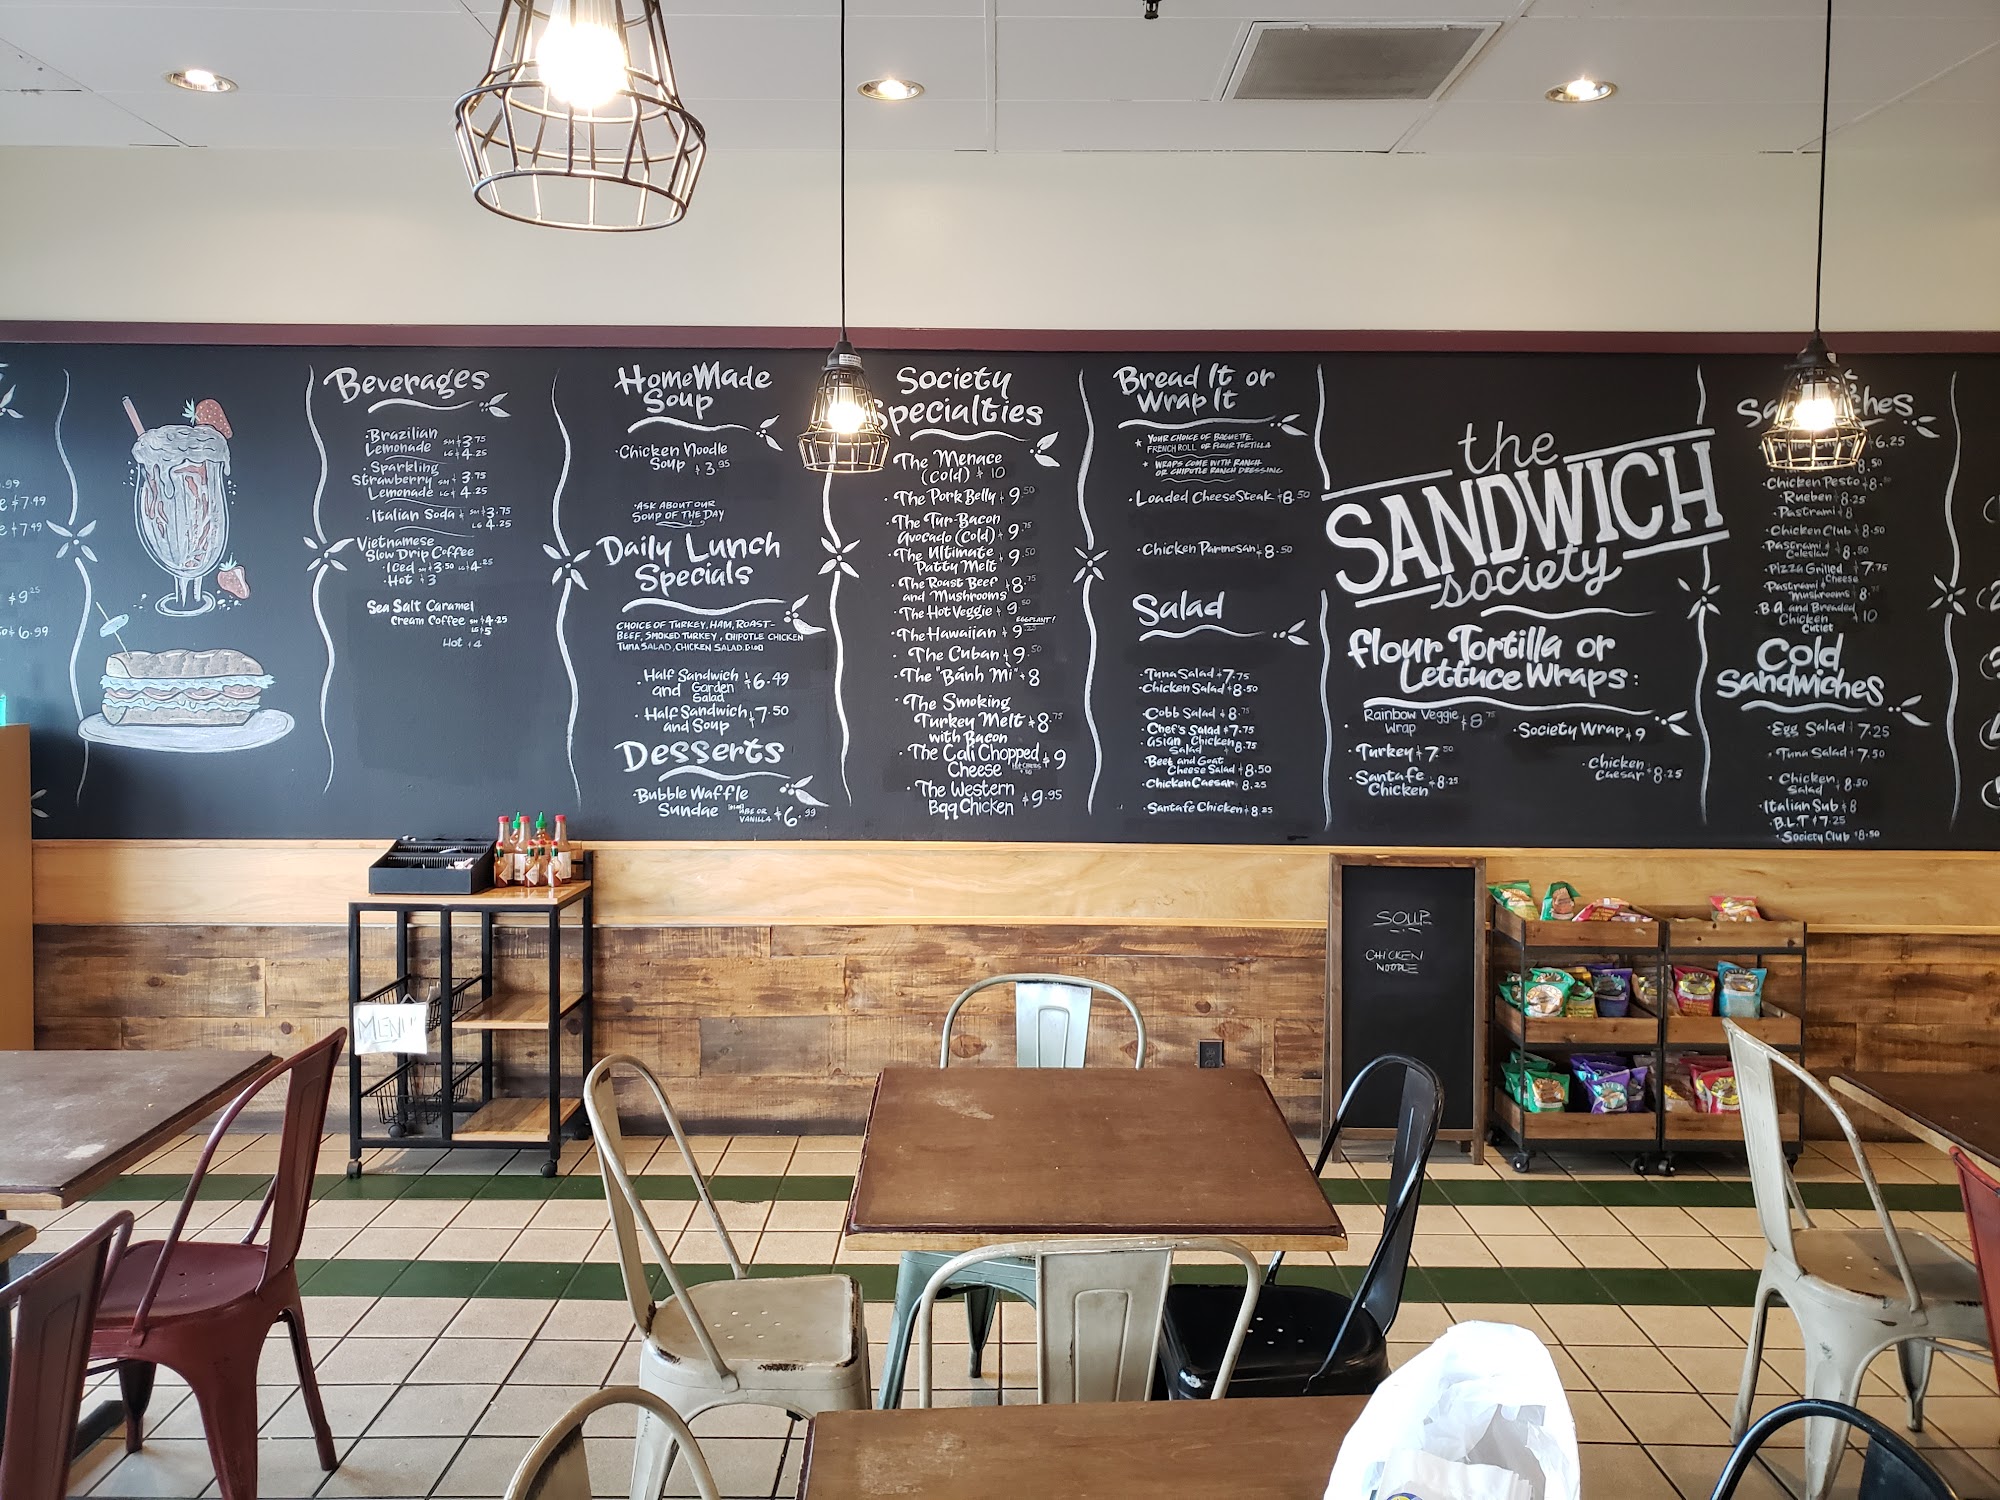 .99
$7.49
$7.49
$9.25
$6.99
Beverages
·Brazilian
Lemonade SM $3.75
LG $4.25
·Sparkling
Strawberry SM $3.75
Lemonade LG $4.25
·Italian Soda SM $3.75
LG $4.25
Vietnamese
Slow Drip Coffee
·Iced SM $3.50 LG $4.25
·Hot $3
Sea Salt Caramel
Cream Coffee SM $4.25
LG $5
Hot $4
HomeMade
Soup
·Chicken Noodle
Soup $3.95
·ASK ABOUT OUR
SOUP OF THE DAY
Daily Lunch
Specials
CHOICE OF TURKEY, HAM, ROAST-
BEEF, SMOKED TURKEY, CHIPOTLE CHICKEN
TUNA SALAD, CHICKEN SALAD
·Half Sandwich $6.49
and Garden
Salad
·Half Sandwich $7.50
and Soup
Desserts
·Bubble Waffle
Sundae
VANILLA $6.99
Society
Specialties
·The Menace
(Cold) $10
·The Pork Belly $9.50
·The Tur-Bacon
Avocado (Cold) $9.75
·The Ultimate
Patty Melt $9.50
·The Roast Beef
and Mushrooms $8.75
·The Hot Veggie $9.50
EGGPLANT!
·The Hawaiian $9
·The Cuban $9.50
·The "Bánh Mì" $8
·The Smoking
Turkey Melt $8.75
with Bacon
·The Cali Chopped
Cheese $9
·The Western
Bqq Chicken $9.95
Bread It or
Wrap It
★ YOUR CHOICE OF BAGUETTE,
FRENCH ROLL OR FLOUR TORTILLA
★ WRAPS COME WITH RANCH
OR CHIPOTLE RANCH DRESSING
·Loaded CheeseSteak $8.50
·Chicken Parmesan $8.50
Salad
·Tuna Salad $7.75
·Chicken Salad $8.50
·Cobb Salad $8.75
·Chef's Salad $7.75
·Asian Chicken
Salad $8.75
·Beet and Goat
Cheese Salad $8.50
·Chicken Caesar $8.25
·Santa fe Chicken $8.25
the
SANDWICH
society
Flour Tortilla or
Lettuce Wraps:
·Rainbow Veggie
Wrap $8.75
·Turkey $7.50
·Santa fe
Chicken $8.25
·Society Wrap $9
·Chicken
Caesar $8.25
$6.25
$8.50
·Chicken Pesto $8.50
·Rueben $8.25
·Pastrami $8
·Chicken Club $8.50
·Pastrami &
Coleslaw $8.50
·Pizza Grilled
Cheese $7.75
·Pastrami &
Mushrooms $8.50
·B.Q. and Breaded
Chicken $10
Cutlet
Cold
Sandwiches
·Egg Salad $7.25
·Tuna Salad $7.50
·Chicken
Salad $8.50
·Italian Sub $8
·B.L.T $7.25
·Society Club $8.50
MENU
SOUP
CHICKEN
NOODLE